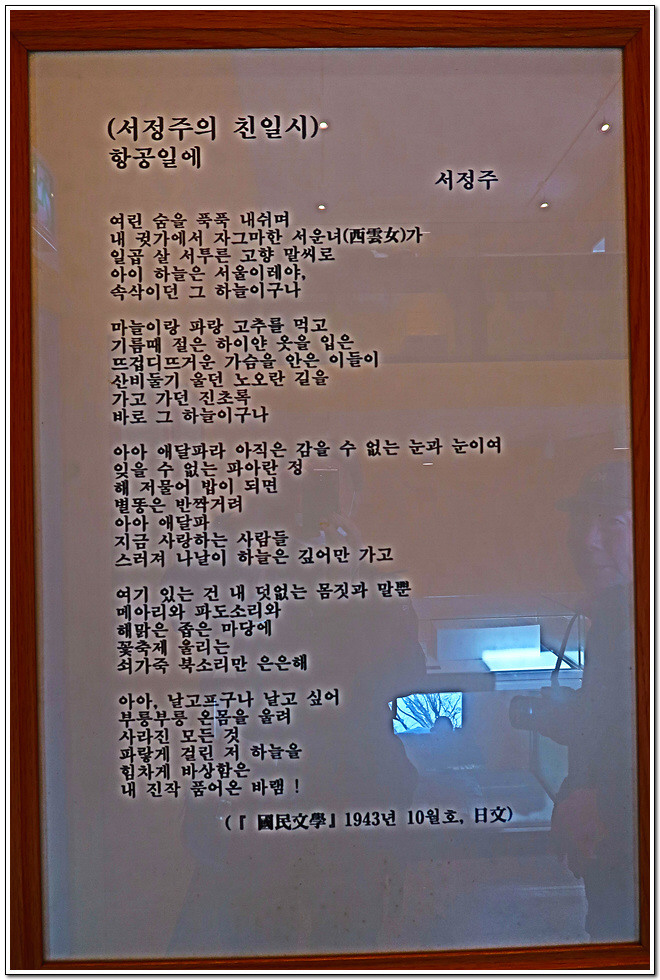 (서정주의 친일시)
항공일에
서정주
여린 숨을 푹푹 내쉬며
내 귓가에서 자그마한 서운녀(西雲女)가
일곱 살 서투른 고향 말씨로
아이 하늘은 서울이레야,
속삭이던 그 하늘이구나
마늘이랑 파랑 고추를 먹고
기름때 절은 하이얀 옷을 입은
뜨겁디뜨거운 가슴을 안은 이들이
산비둘기 울던 노오란 길을
가고 가던 진초록
바로 그 하늘이구나
아아 애달파라 아직은 감을 수 없는 눈과 눈이여
잊을 수 없는 파아란 정
해 저물어 밤이 되면
별똥은 반짝거려
아아 애달파
지금 사랑하는 사람들
스러져 나날이 하늘은 깊어만 가고
여기 있는 건 내 덧없는 몸짓과 말뿐
메아리와 파도소리와
해맑은 좁은 마당에
꽃축제 올리는
쇠가죽 북소리만 은은해
아아, 날고프구나 날고 싶어
부릉부릉 온몸을 울려
사라진 모든 것
파랗게 걸린 저 하늘을
힘차게 비상함은
내 진작 품어온 바램 !
(『 國民文學』1943년 10월호, 日文)